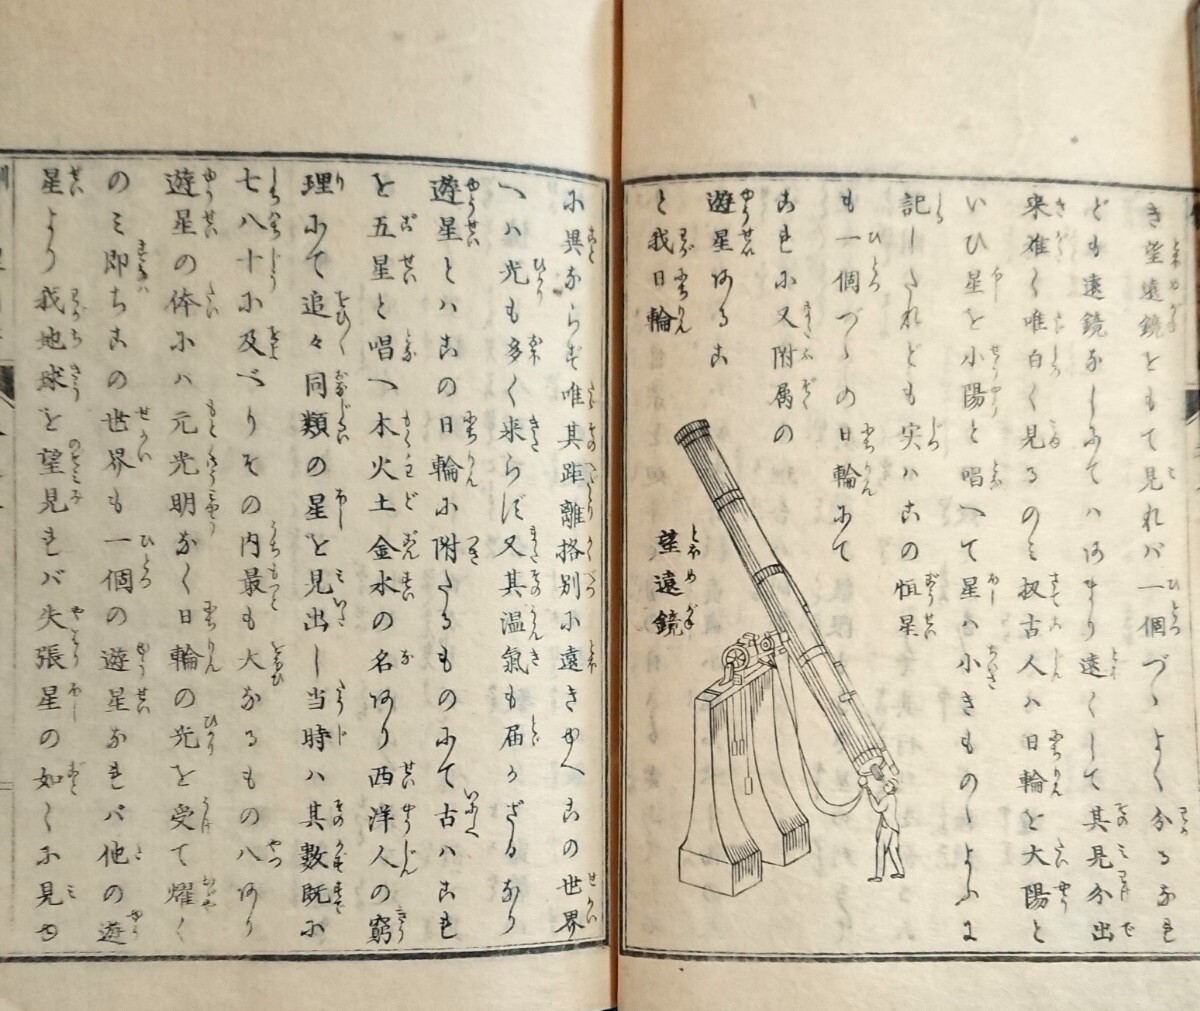 き望遠鏡をもて見れバ一個づゝよく分るなれ
ども遠鏡なしにてハあまり遠くして其見分出
来难く唯白く見るのミ扨古人ハ日輪を大陽と
いひ星を小陽と唱へて星ハ小きものゝよふに
記したれども実ハこの恒星
も一個づゝの日輪にて
これに又附属の
遊星あるこ
と我日輪
望遠鏡
に異ならず唯其距離格別に遠きゆへこの世界
へハ光も多く来らず又其温氣も届かざるなり
遊星とハこの日輪に附たるものにて古ハこれ
を五星と唱へ木火土金水の名あり西洋人の窮
理にて追々同類の星を見出し当時ハ其數既に
七八十に及べりその内最も大なるもの八あり
遊星の体にハ元光明なく日輪の光を受て耀く
のミ即ちこの世界も一個の遊星なれバ他の遊
星より我地球を望見れバ矢張星の如くに見ゆ